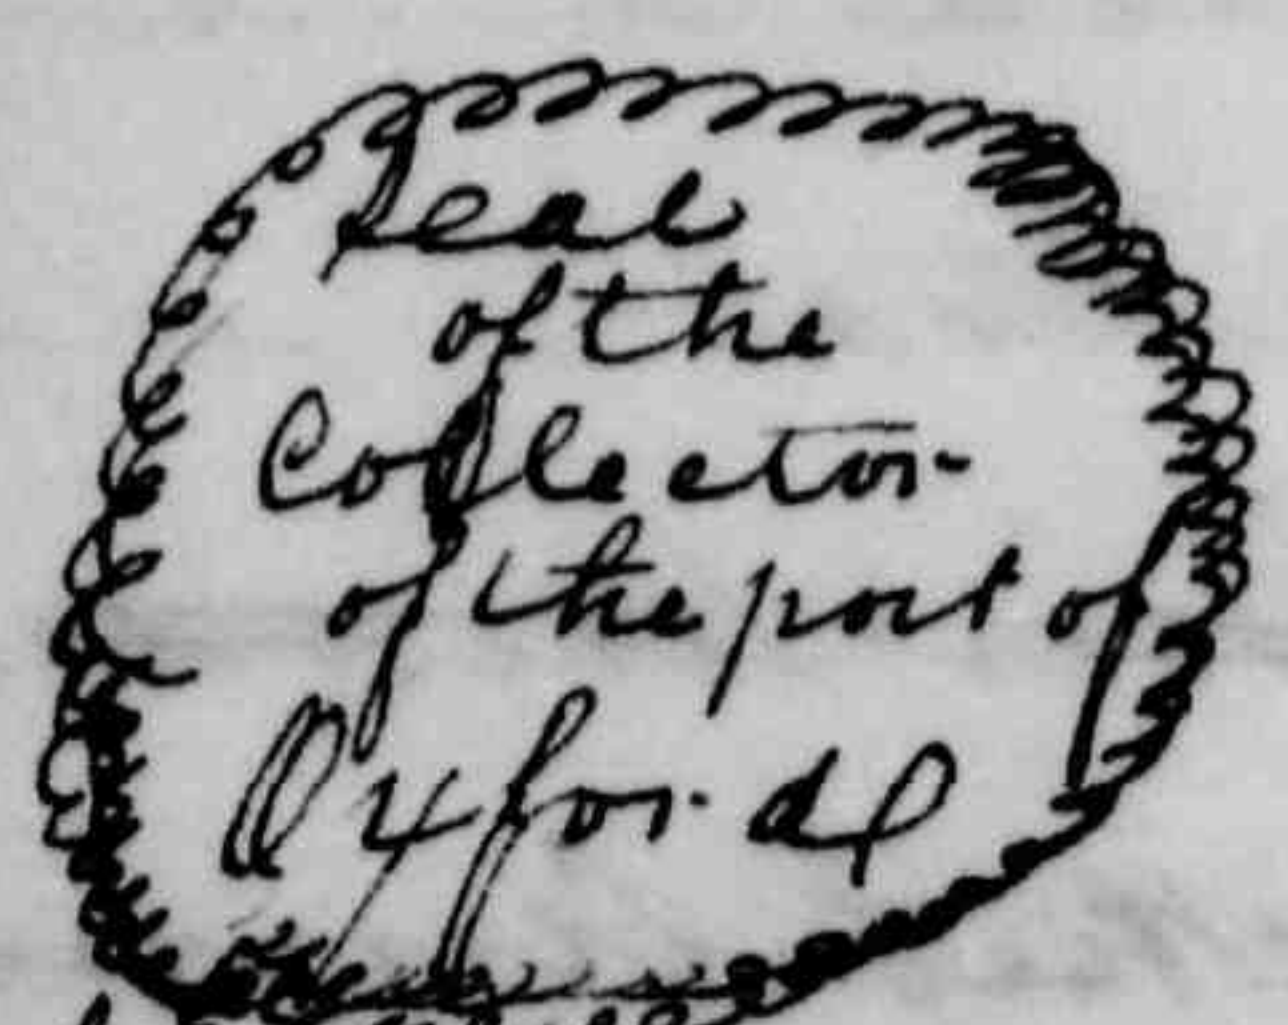 Seal
of the
Collector
of the port of
Oxford